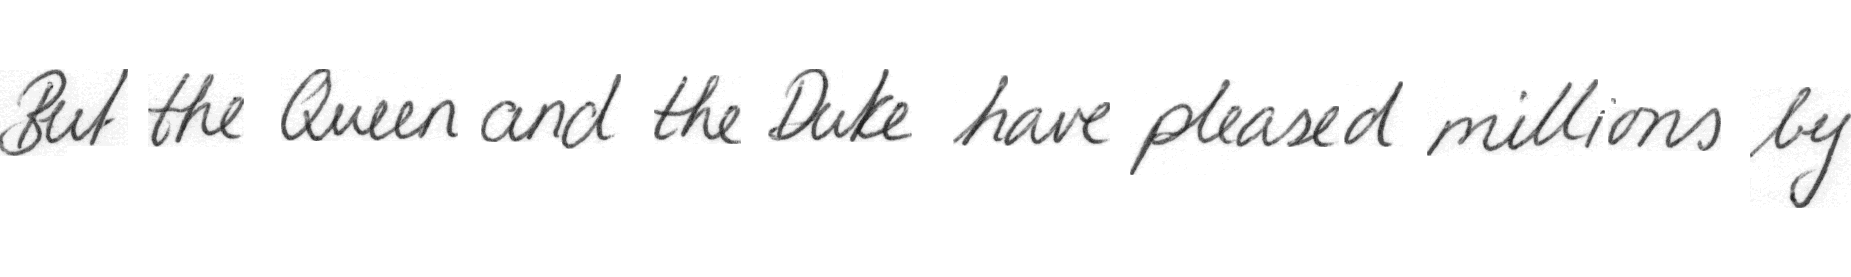 But the Queen and the Duke have pleased millions by